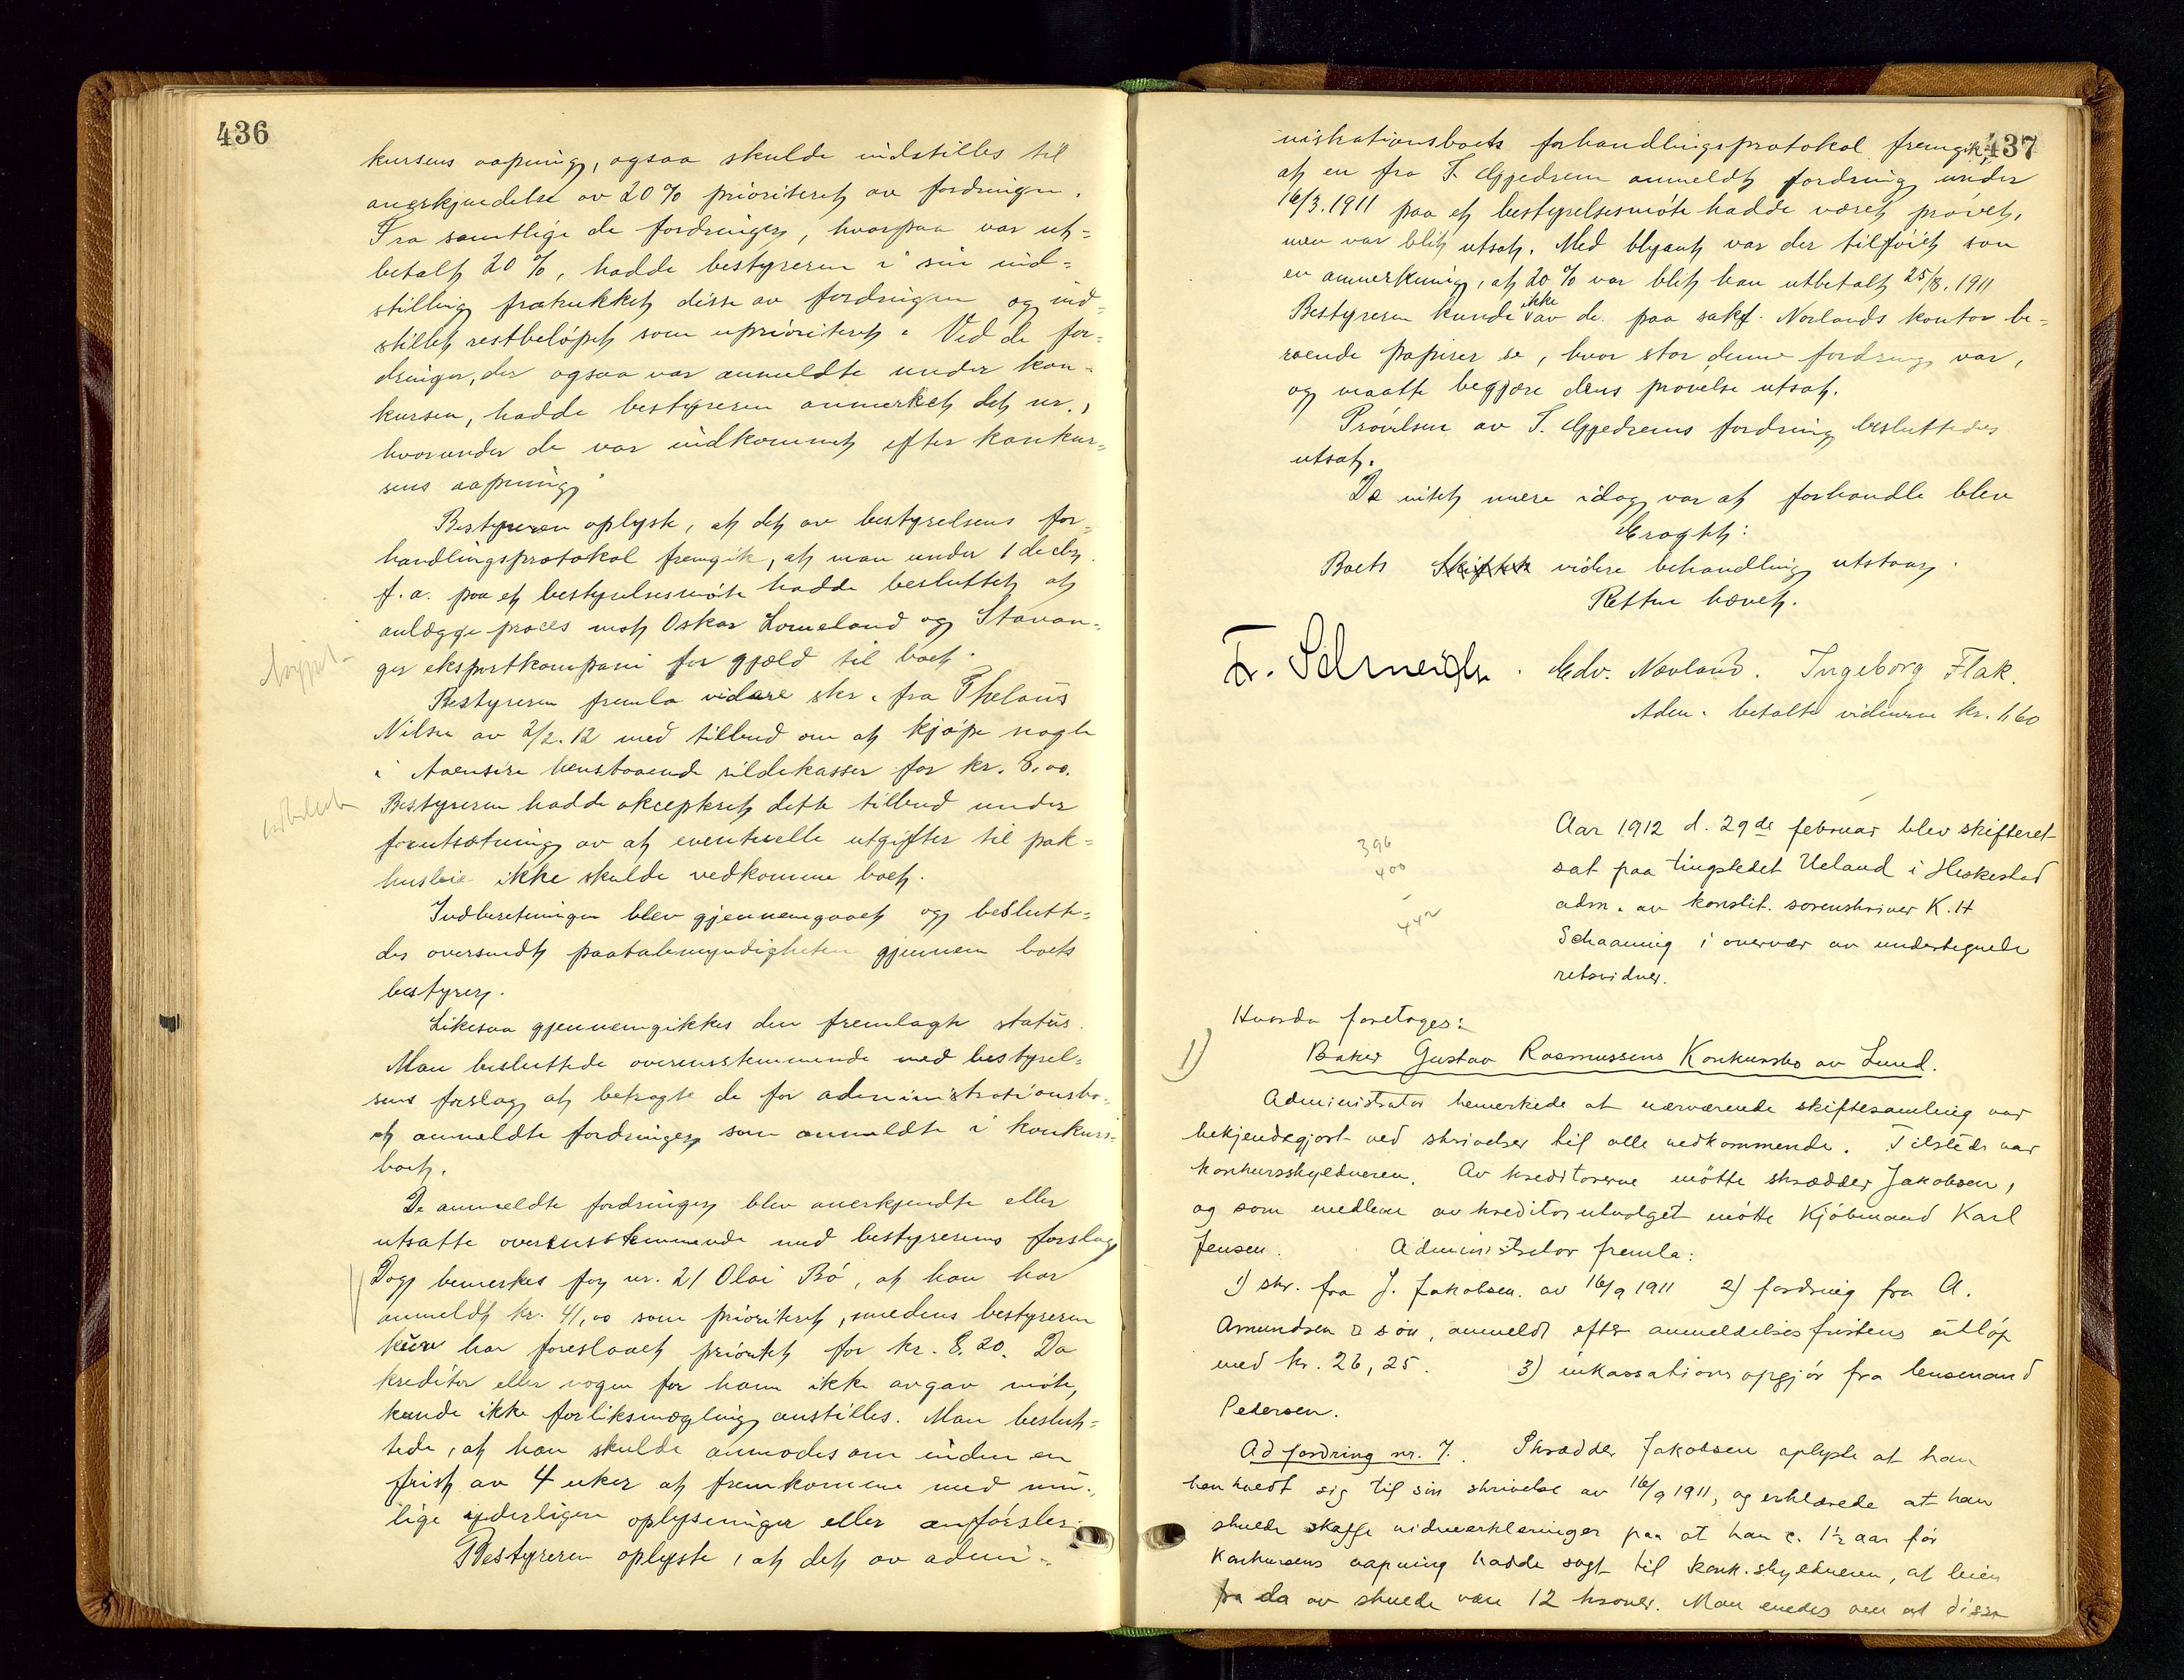 436
kursens aapning, ogsaa skulde indstilles til
anerkjendelse av 20% prioritert av fordringen.
Fra samtlige de fordringer, hvorpaa var ut-
betalt 20%, hadde bestyreren i sin ind-
stilling fratrukket disse av fordringen og ind-
stillet restbeløpet som uprioritert. Ved de for-
dringer, der ogsaa var anmeldte under kon-
kursen, hadde bestyreren anmerket det nr.,
hvorunder de var indkommet efter konkur-
sens aapning.
Bestyreren oplyste, at det av bestyrelsens for-
handlingsprotokol fremgik, at man under 1 decbr.
f. a. paa et bestyrelsesmøte hadde besluttet at
anlægge proces mot Oskar Lomeland og Stavan-
ger eksportkompani for gjæld til boet.
Bestyreren fremla videre skr. fra Tholaus
Nilsen av 2/2. 12 med tilbud om at kjøpe nogle
i Aaensire henstaaende sildekasser for kr. 8.00.
Bestyreren hadde akceptert dette tilbud under
forutsætning av at eventuelle utgifter til pak-
husleie ikke skulde vedkomme boet.
Indberetningen blev gjennemgaaet og beslutte-
des oversendt paatalemyndigheten gjennem boets
bestyrer.
Likesaa gjennemgikkes den fremlagte status.
Man besluttede overensstemmende med bestyrel-
sens forslag at betragte de for administrationsbo-
et anmeldte fordringer som anmeldte i konkurs-
boet.
De anmeldte fordringer blev anerkjendte eller
utsatte overensstemmende med bestyrerens forslag
Dog bemerkes for nr. 21 Olai Bø, at han har
anmeldt kr. 41,00 som prioritert, medens bestyreren
kun har foreslaaet prioritet for kr. 8.20. Da
kreditor eller nogen for ham ikke avgav møte,
kunde ikke forliksmægling anstilles. Man beslut-
tede, at han skulde anmodes om inden en
frist av 4 uker at fremkomme med mu-
lige yderligere oplysninger eller anførsler.
Bestyreren oplyste, at det av admi-
437
nistrationsboets forhandlingsprotokol fremgik,
at en fra T. Gjedrem anmeldt fordring under
16/3. 1911 paa et bestyrelsesmøte hadde været prøvet,
men var blit utsat. Med blyant var der tilføiet som
en anmerkning, at 20% var blit han utbetalt 25/8. 1911
Bestyreren kunde ikke av de paa sakf. Norlands kontor be-
roende papirer se, hvor stor denne fordring var,
og maatte begjære dens prøvelse utsat.
Prøvelsen av T. Gjedrems fordring besluttedes
utsat.
Da intet mere idag var at forhandle blev
Eragtet:
Boets videre behandling utstaar.
Retten hævet.
Edv. Novland. Ingeborg Flak.
Adm. betalte vidnerne kr. 1,60
396
400
442
Aar 1912 d. 29de februar blev skifteret
sat paa tingstedet Ueland i Heskestad
adm. av konstit. sorenskriver K. H
Schaanning i overvær av undertegnede
retsvidner.
Hvorda foretoges:
1)
Baker Gustav Rasmussens Konkursbo av Lund.
Administrator bemerkede at nærværende skiftesamling var
bekjendtgjort ved skrivelser til alle vedkommende. Tilstede var
konkursskyldneren. Av kreditorerne møtte skrædder Jakobsen,
og som medlem av kreditorutvalget møtte Kjøbmand Karl
Jensen. Administrator fremla:
1) skr. fra J. Jakobsen. av 16/9 1911 2) fordring fra A.
Amundsen & søn, anmeldt efter anmeldelsesfristens utløp
med kr. 26,25. 3) inkassationsopgjør fra lensmand
Pedersen.
Ad fordring nr. 7. Skrædder Jakobsen oplyste at han
henholdt sig til sin skrivelse av 16/9 1911, og erklærede at han
skulde skaffe vidneerklæringer paa at han c. 1½ aar før
Konkursens aapning hadde sagt til konk.skyldneren, at leien
fra da av skulde være 12 kroner. Man enedes om at disse